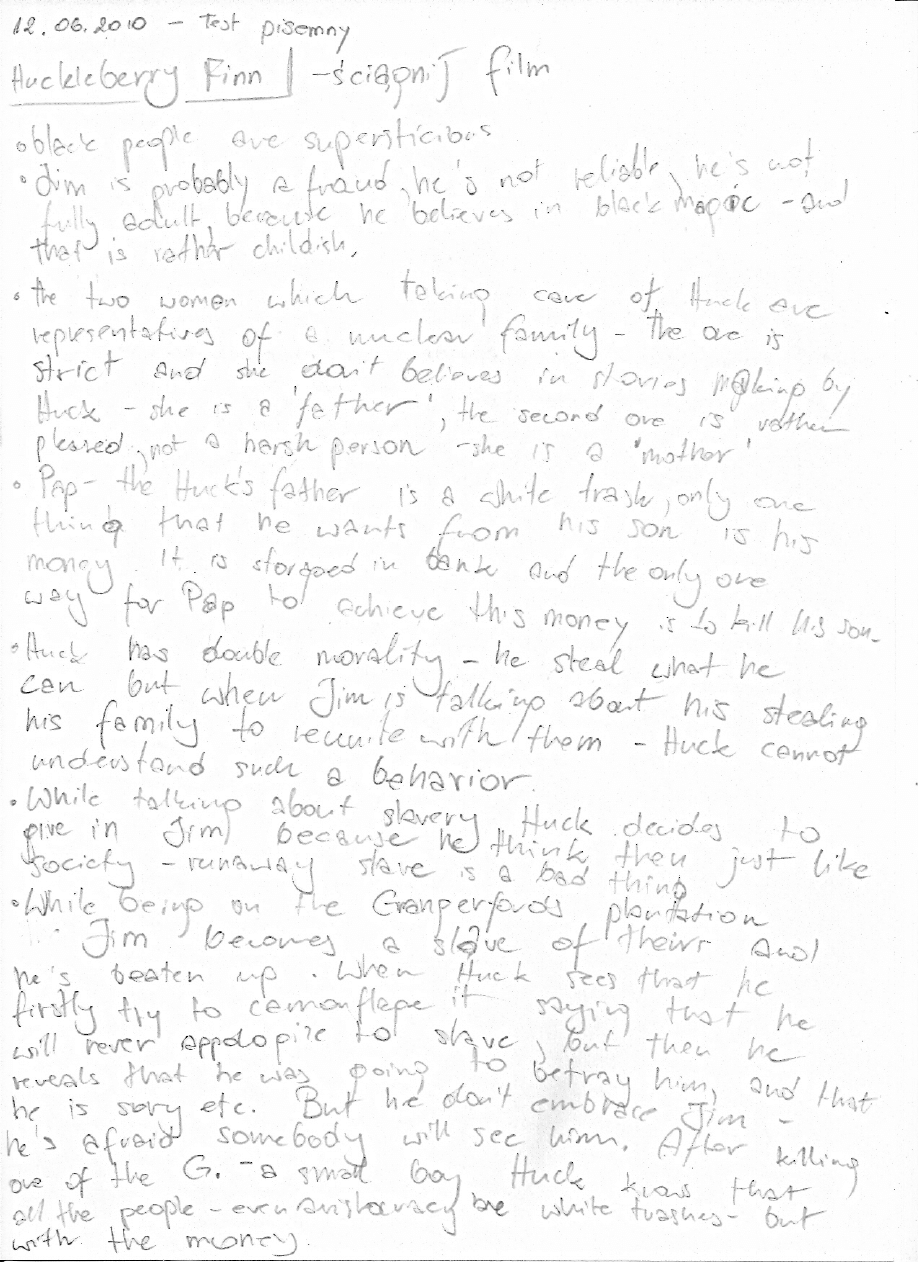 12.06.2010 – Test pisemny
Huckleberry Finn – ściągnij film
• black people are supersticious
• Jim is probably a fraud, he's not reliable, he's not
fully adult, because he believes in black magic – and
that is rather childish.
• the two women which taking care of Huck are
representatives of a nuclear family – the one is
strict and she don't believes in stories making by
Huck – she is a 'father', the second one is rather
pleased, not a harsh person – she is a 'mother'
• Pap – the Huck's father is a white trash, only one
thing that he wants from his son is his
money. It is storaged in bank and the only one
way for Pap to achieve this money is to kill his son.
• Huck has double morality – he steal what he
can but when Jim is talking about his stealing
his family to reunite with them – Huck cannot
understand such a behavior.
• While talking about slavery Huck decides to
give in Jim, because he think then just like
society – runaway slave is a bad thing
• While being on the Grangerfords plantation
Jim becomes a slave of theirs and
he's beaten up. When Huck sees that he
firstly try to camouflage it saying that he
will never appologize to slave, but then he
reveals that he was going to betray him, and that
he is sory etc. But he don't embrace Jim –
he's afraid somebody will see him. After killing
one of the G. – a small boy Huck knows that
all the people – even aristocracy are white trashes – but
with the money.